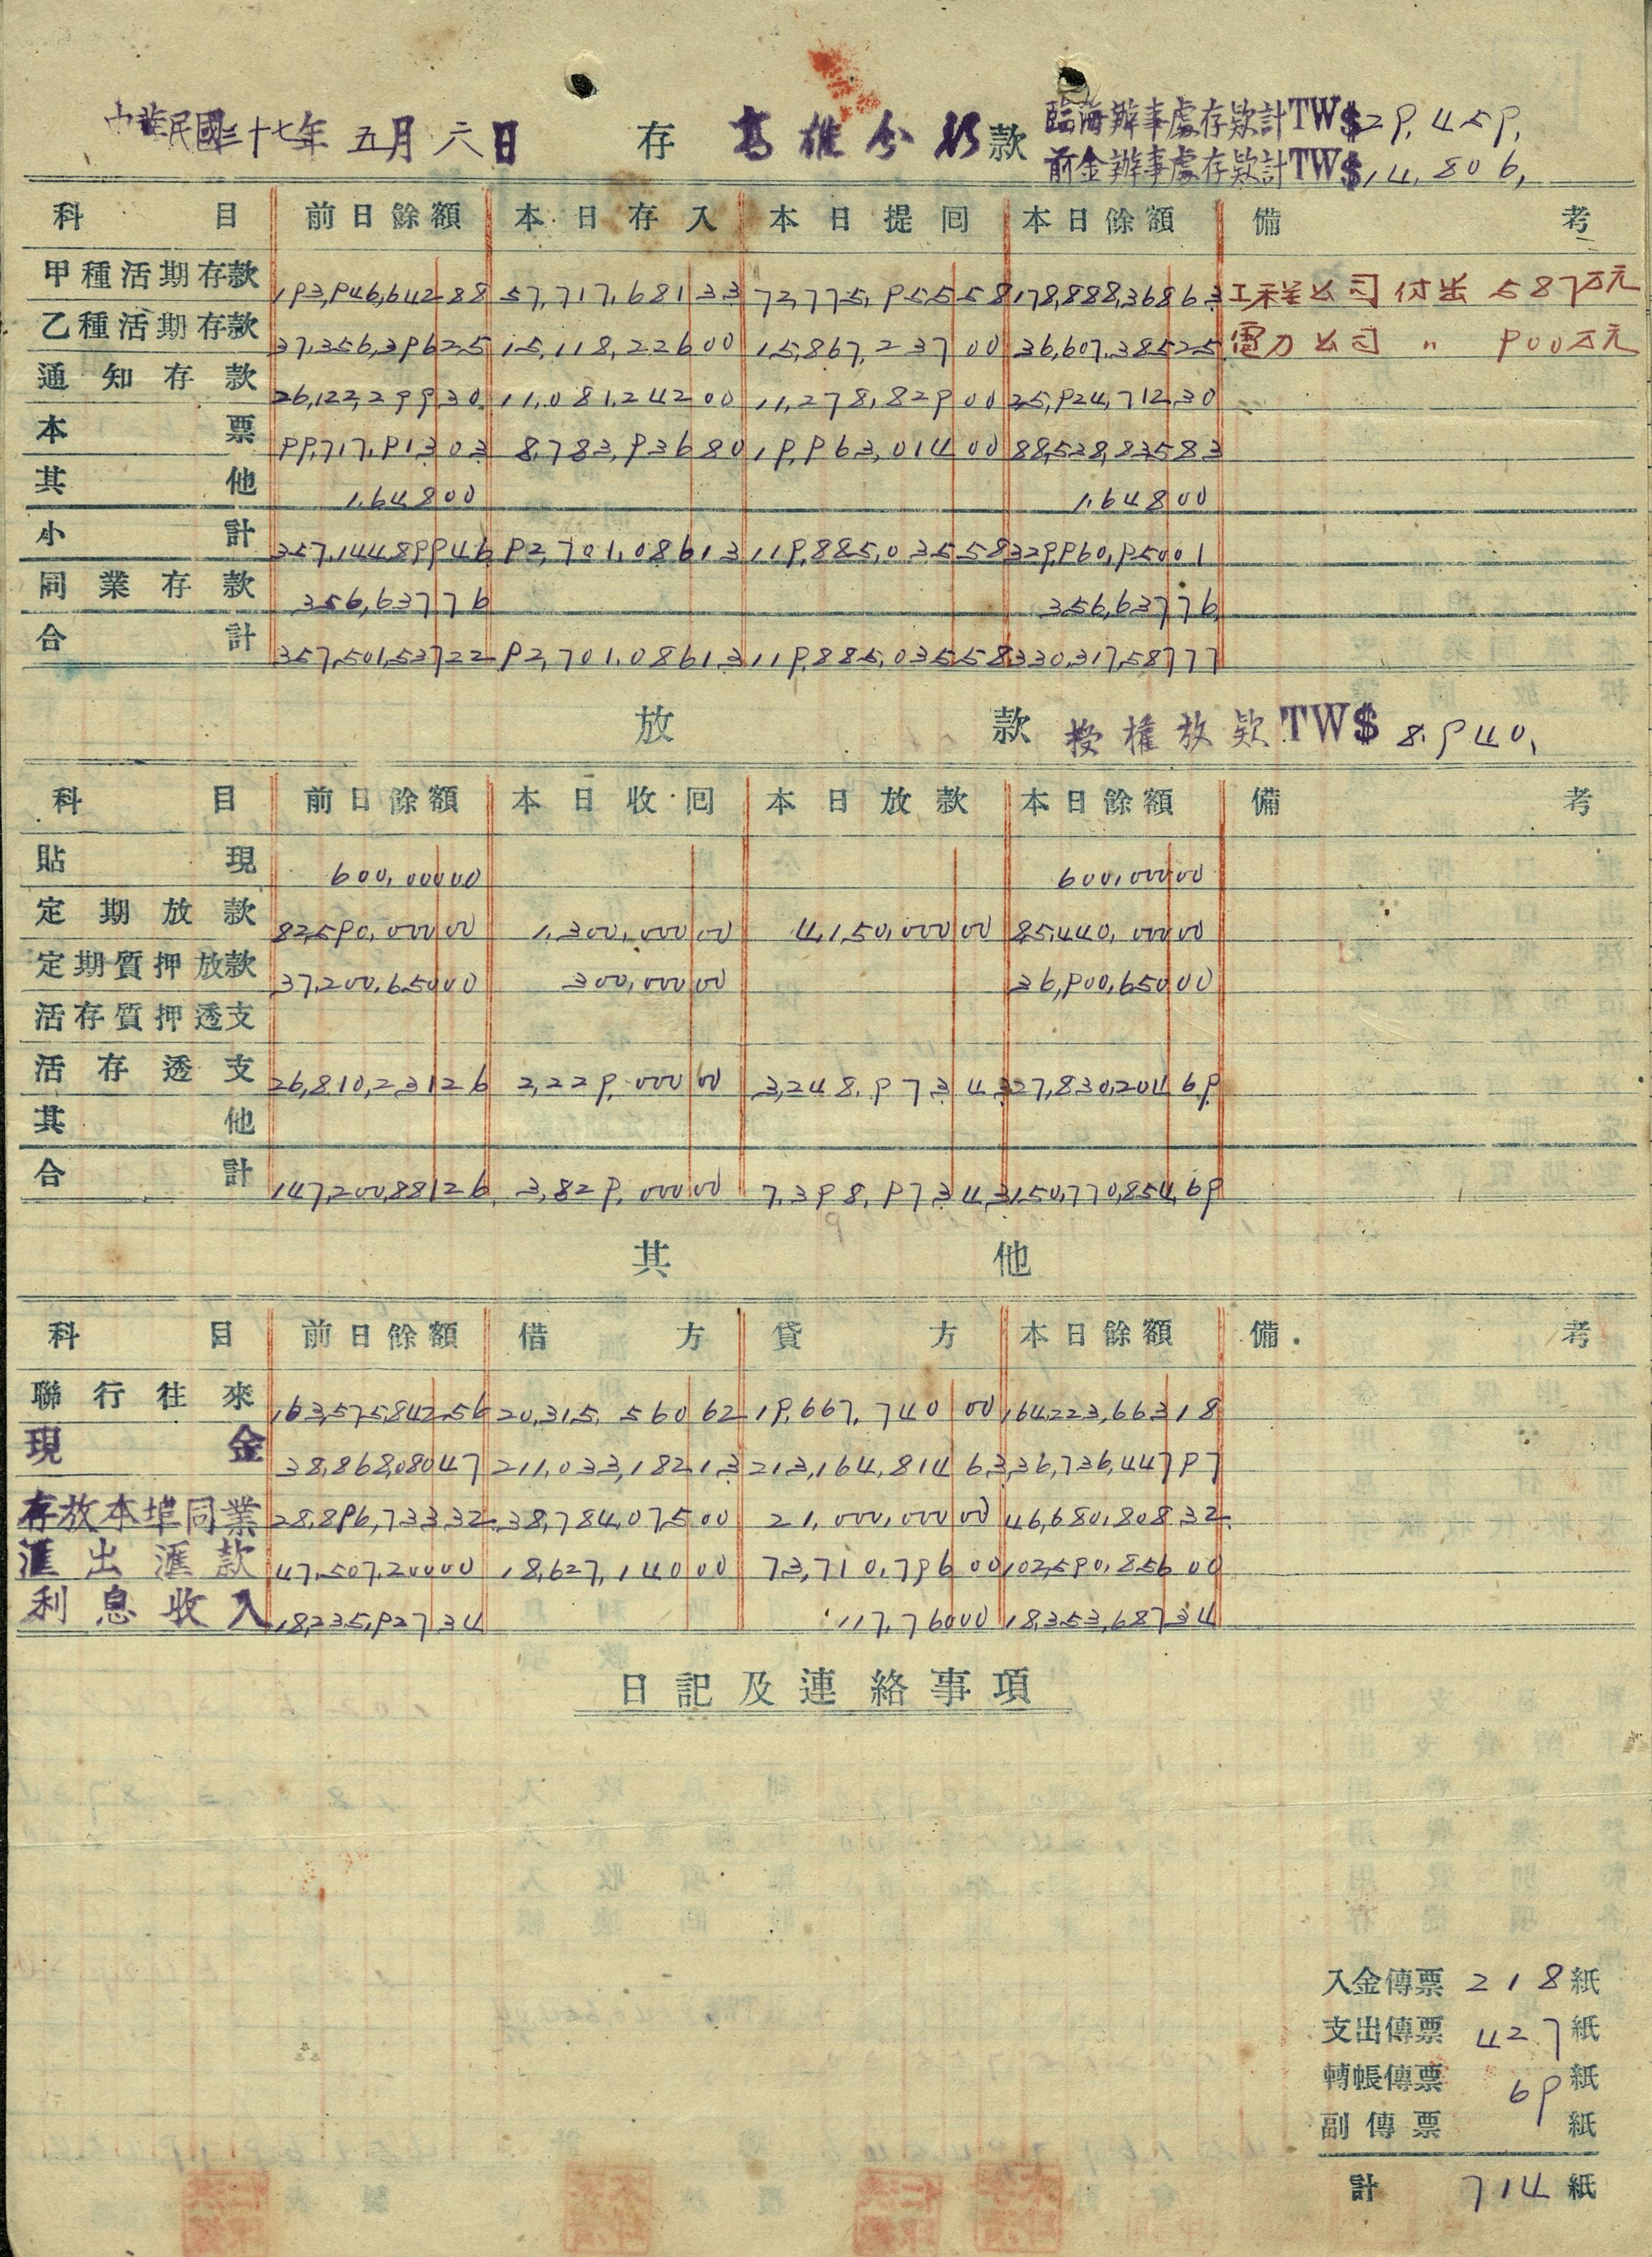 中華民國三十七年 五月 六日 存 高雄分行 款 臨海辦事處存欵計TW$29,459,
前金辦事處存欵計TW$14,806,
科目 前日餘額 本日存入 本日提囘 本日餘額 備考
甲種活期存款 193,946,642 88 57,717,681 33 72,775,955 58 178,888,368 63 工程公司付出 587万元
乙種活期存款 37,356,396 25 15,118,226 00 15,867,237 00 36,607,385 25 電力公司 〃 900万元
通知存款 26,122,299 30 11,081,242 00 11,278,829 00 25,924,712 30
本票 99,717,913 03 8,783,936 80 19,963,014 00 88,538,835 83
其他 1,648 00 1,648 00
小計 357,144,899 46 92,701,086 13 119,885,035 58 329,960,950 01
同業存款 356,637 76 356,637 76
合計 357,501,537 22 92,701,086 13 119,885,035 58 330,317,587 77
放款 授權放欵TW$ 8,940,
科目 前日餘額 本日收囘 本日放款 本日餘額 備考
貼現 600,000 00 600,000 00
定期放款 82,590,000 00 1,300,000 00 4,150,000 00 85,440,000 00
定期質押放款 37,200,650 00 300,000 00 36,900,650 00
活存質押透支
活存透支 26,810,231 26 2,229,000 00 3,248,973 43 27,830,204 69
其他
合計 147,200,881 26 3,829,000 00 7,398,973 43 150,770,854 69
其他
科目 前日餘額 借方 貸方 本日餘額 備考
聯行往來 163,575,842 56 20,315,560 62 19,667,740 00 164,223,663 18
現金 38,868,080 47 211,033,182 13 213,164,814 63 36,736,447 97
存放本埠同業 28,896,733 32 38,784,075 00 21,000,000 00 46,680,808 32
滙出滙款 47,507,200 00 18,627,140 00 73,710,796 00 102,590,856 00
利息收入 18,235,927 34 117,760 00 18,353,687 34
日記及連絡事項
入金傳票 218 紙
支出傳票 427 紙
轉帳傳票 69 紙
副傳票 紙
計 714 紙